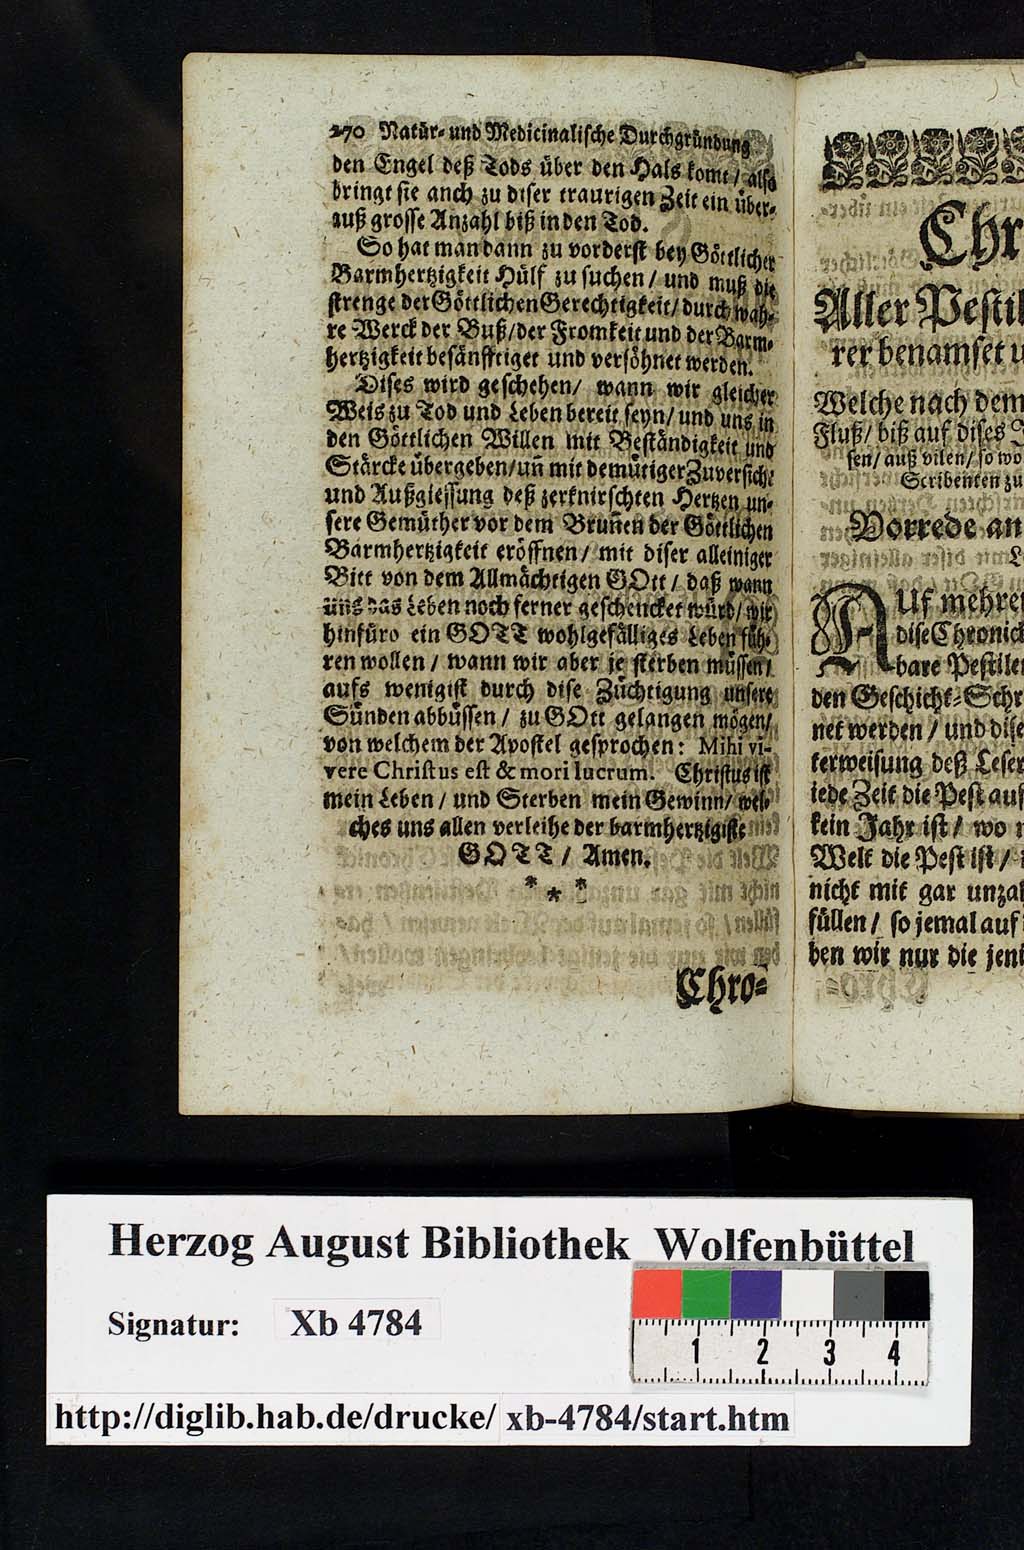 270 Natür- und Medicinalische Durchgründung
den Engel deß Tods über den Hals komt / also
bringt sie anch zu diser traurigen Zeit ein über-
auß grosse Anzahl biß in den Tod.
So hat man dann zu vorderst bey Göttlicher
Barmhertzigkeit Hülf zu suchen / und muß die
strenge der Göttlichen Gerechtigkeit / durch wah-
re Werck der Buß / der Fromkeit und der Barm-
hertzigkeit besänfftiget und versöhnet werden.
Dises wird geschehen / wann wir gleicher
Weis zu Tod und Leben bereit seyn / und uns in
den Göttlichen Willen mit Beständigkeit und
Stärcke übergeben / uñ mit demütiger Zuversicht
und Außgiessung deß zerknirschten Hertzen un-
sere Gemüther vor dem Bruñen der Göttlichen
Barmhertzigkeit eröffnen / mit diser alleiniger
Bitt von dem Allmächtigen GOtt / daß wann
uns das Leben noch ferner geschencket würd / wir
hinfüro ein GOTT wohlgefälliges Leben füh-
ren wollen / wann wir aber je sterben müssen /
aufs wenigist durch dise Züchtigung unsere
Sünden abbüssen / zu GOtt gelangen mögen /
von welchem der Apostel gesprochen: Mihi vi-
vere Christus est & mori lucrum. Christus ist
mein Leben / und Sterben mein Gewinn / wel-
ches uns allen verleihe der barmhertzigiste
GOTT / Amen.
* * *
Chro-
Chr
Aller Pestil
rer benamset u
Welche nach dem
Fluß / biß auf dises J
sen / auß vilen / so wo
Scribenten zu
Vorrede an
L
AUf mehre
dise Chronick
bare Pestile
den Geschicht-Schr
net werden / und dise
terweisung deß Leser
iede Zeit die Pest auf
kein Jahr ist / wo
Welt die Pest ist /
nicht mit gar unzah
füllen / so jemal auf
ben wir nur die jeni
Herzog August Bibliothek Wolfenbüttel
Signatur: Xb 4784
1 2 3 4
http://diglib.hab.de/drucke/ xb-4784/start.htm